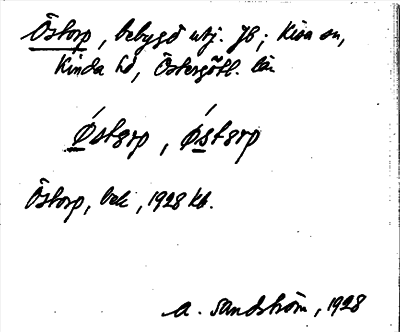 Östorp, bebygd utj. JB; Kisa sn,
Kinda hd, Östergötl. län
Østɐrp, Østɐrp
Östorp, bek, 1928 Kb.
A. Sandström, 1928